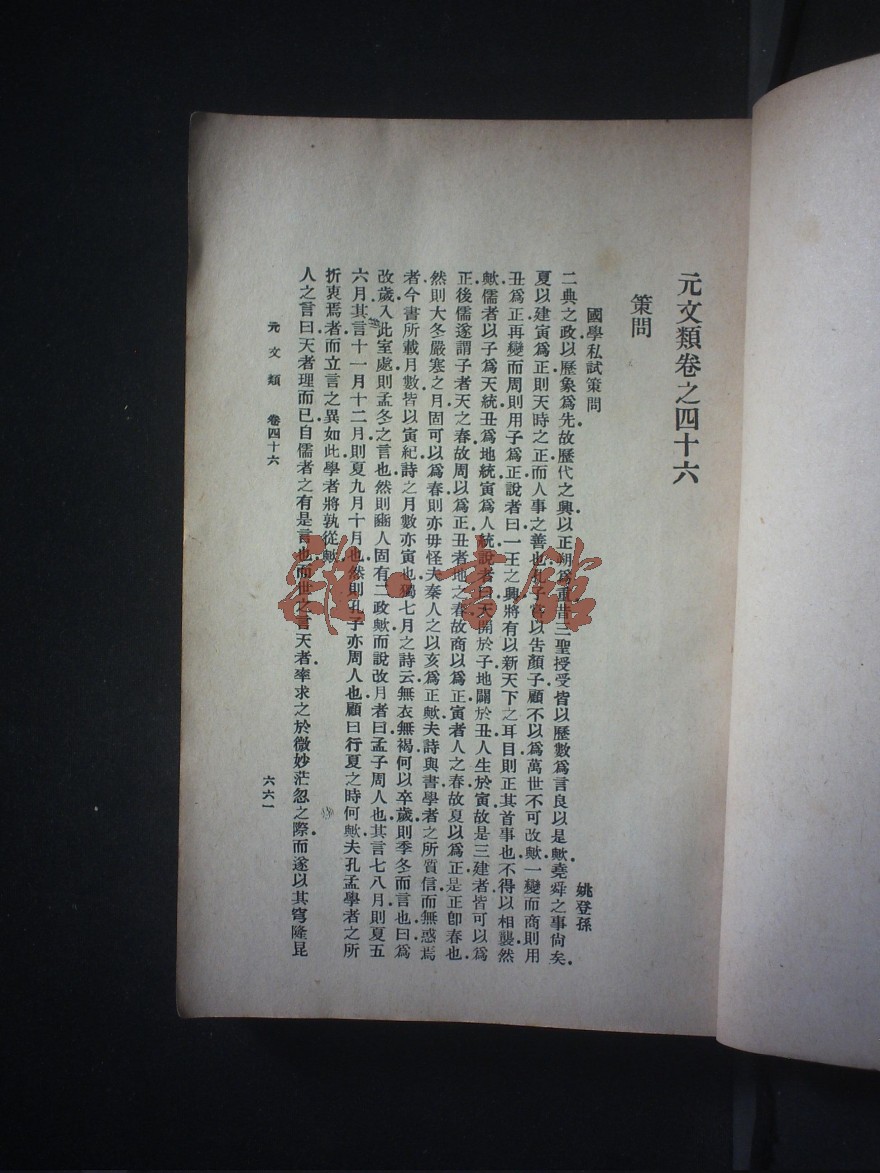 元文類卷之四十六
策問
國學私試策問
姚登孫
二典之政以歷象爲先故歷代之興以正朔爲重昔三聖授受皆以歷數爲言良以是歟堯舜之事尙矣
夏以建寅爲正則天時之正而人事之善也孔子嘗以吿顏子顧不以爲萬世不可改歟一變而商則用
丑爲正再變而周則用子爲正說者曰一王之興將有以新天下之耳目則正其首事也不得以相襲然
歟儒者以子爲天統丑爲地統寅爲人統說者曰天開於子地闢於丑人生於寅故是三建者皆可以爲
正後儒遂謂子者天之春故周以爲正丑者地之春故商以爲正寅者人之春故夏以爲正是正卽春也
然則大冬嚴寒之月固可以爲春則亦毋怪夫秦人之以亥爲正歟夫詩與書學者之所質信而無惑焉
者今書所載月數皆以寅紀詩之月數亦寅也獨七月之詩云無衣無褐何以卒歲則季冬而言也曰爲
改歲入此室處則孟冬之言也然則豳人固有二政歟而說改月者曰孟子周人也其言七八月則夏五
六月其言十一月十二月則夏九月十月也然則孔子亦周人也顧曰行夏之時何歟夫孔孟學者之所
折衷焉者而立言之異如此學者將孰從歟
人之言曰天者理而已自儒者之有是言也而世之言天者率求之於微妙茫忽之際而遂以其穹隆昆
元文類 卷四十六
六六一
雜·書館